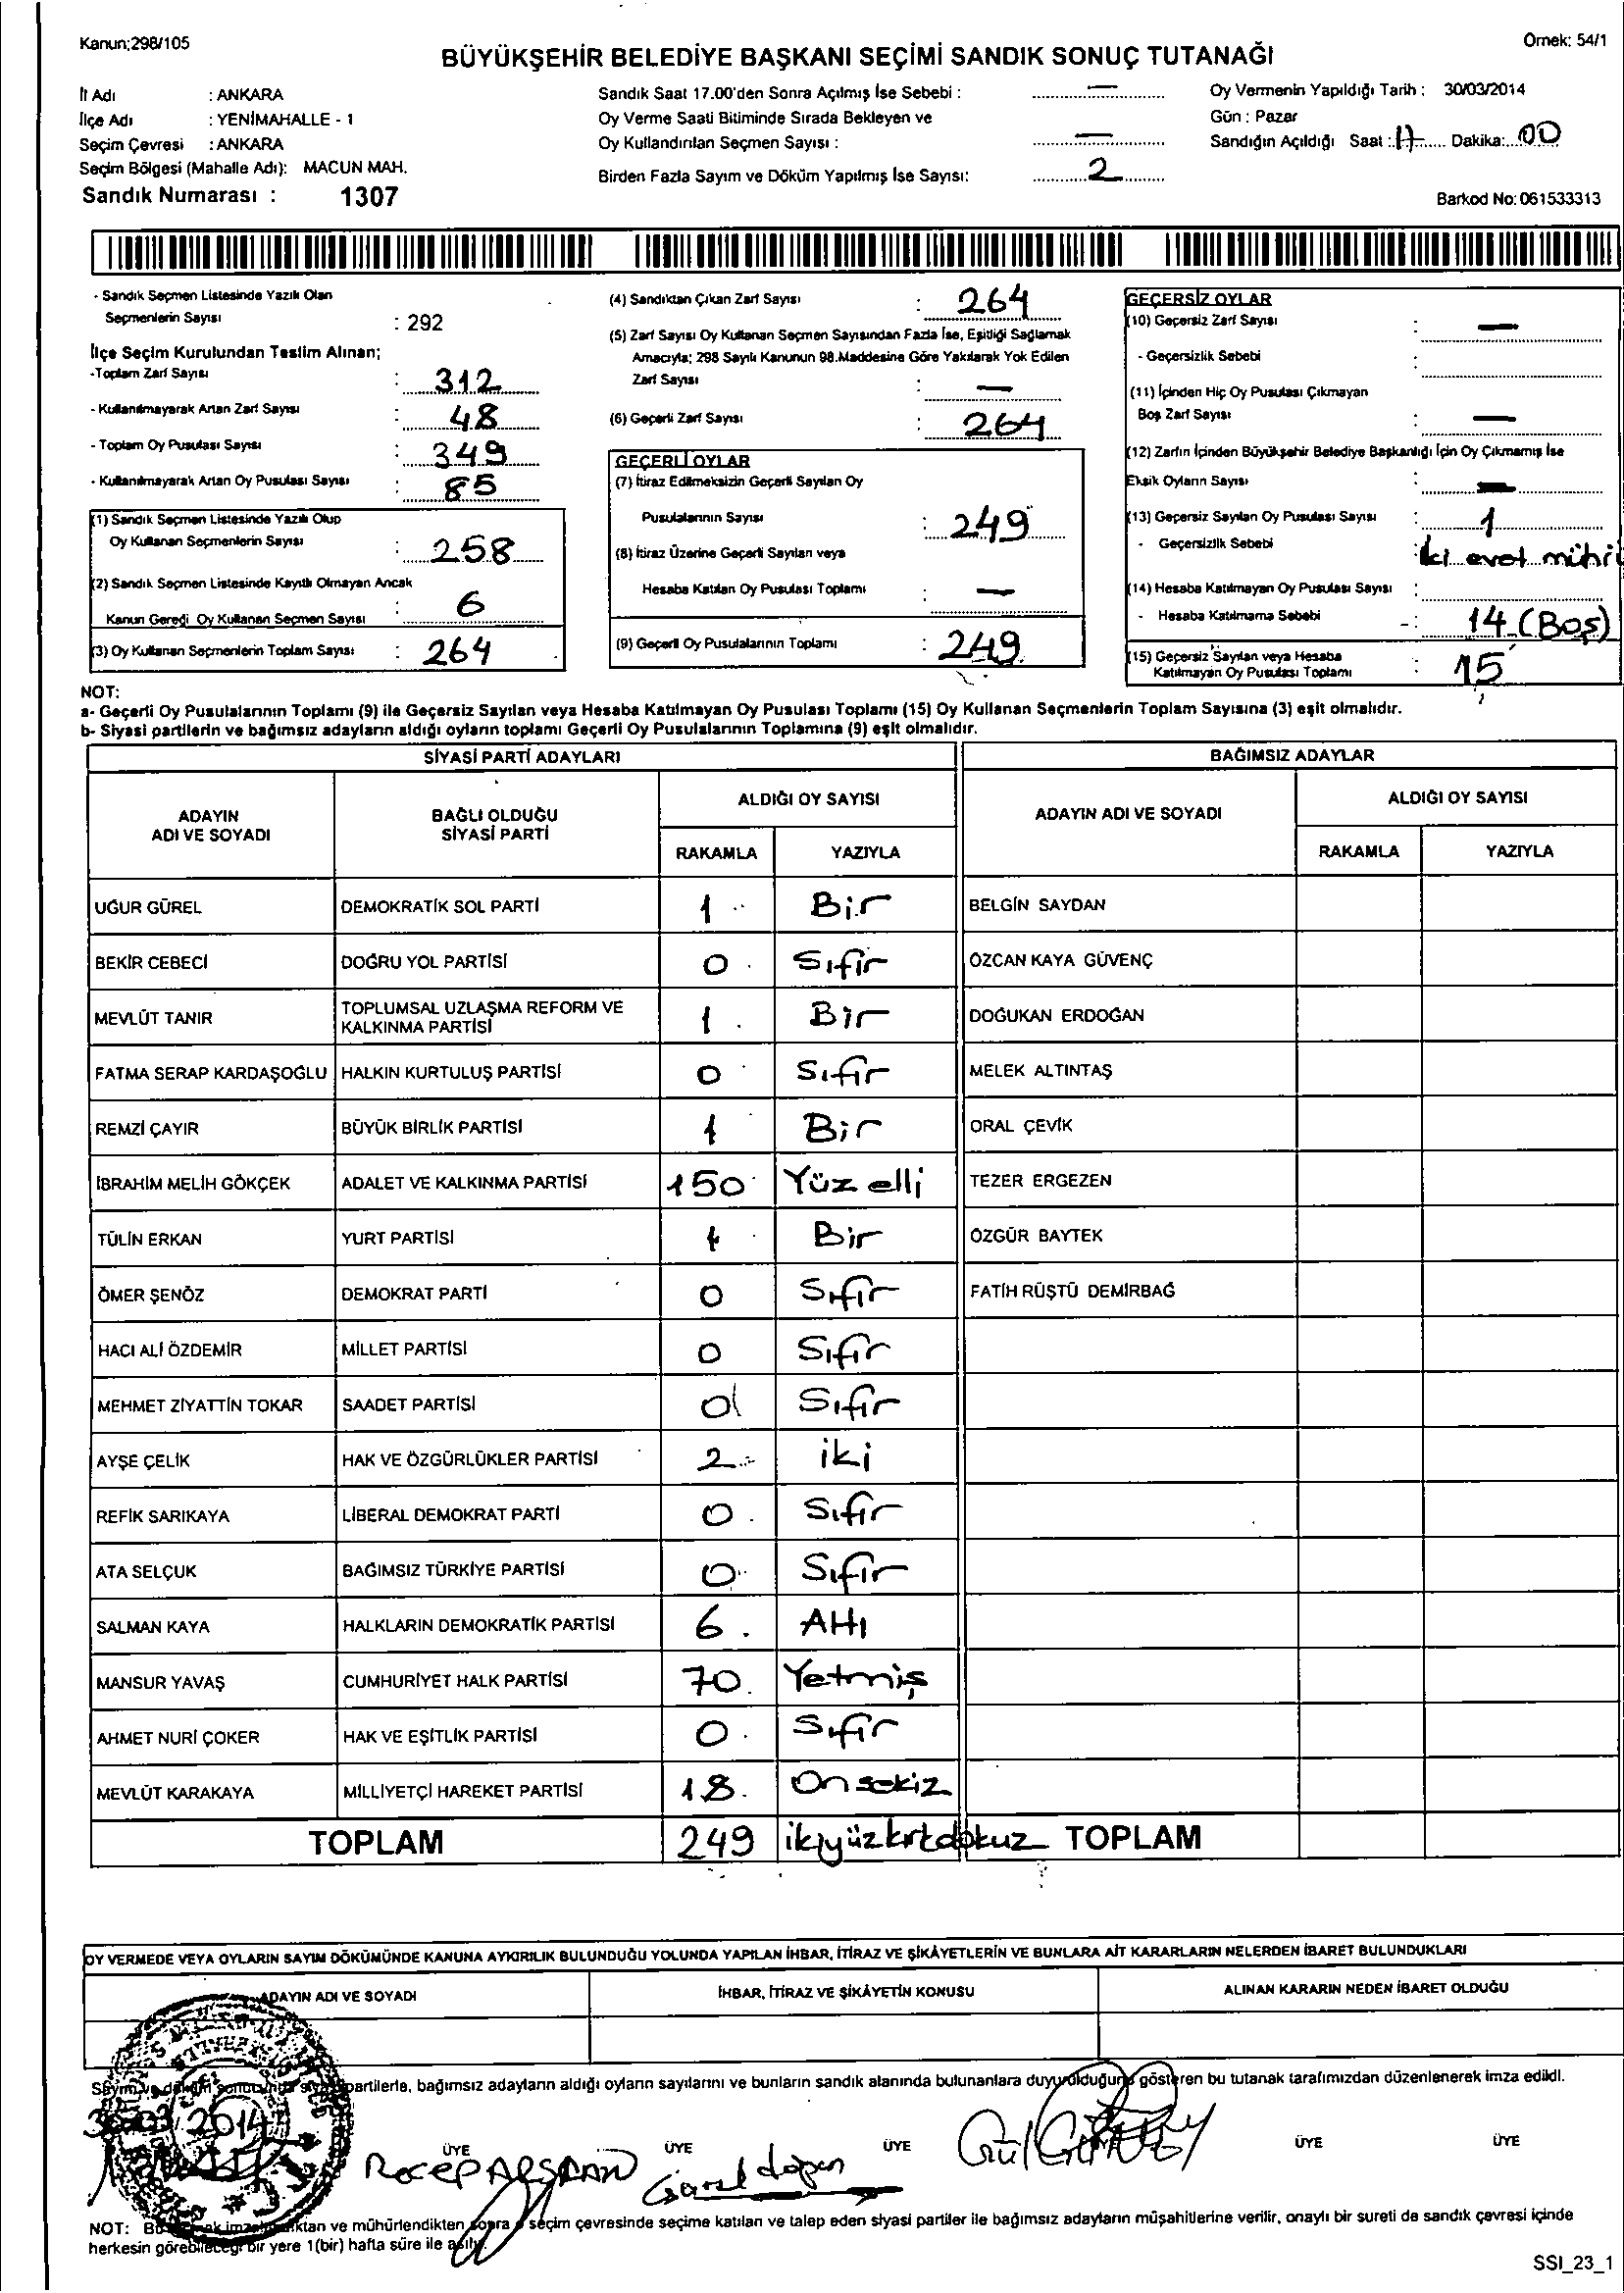 Kanun;298/105
Örnek: 54/1
BÜYÜKŞEHİR BELEDİYE BAŞKANI SEÇİMİ SANDIK SONUÇ TUTANAĞI
İl Adı : ANKARA
İlçe Adı : YENİMAHALLE - 1
Seçim Çevresi : ANKARA
Seçim Bölgesi (Mahalle Adı): MACUN MAH.
Sandık Numarası : 1307
Sandık Saat 17.00'den Sonra Açılmış İse Sebebi : —
Oy Verme Saati Bitiminde Sırada Bekleyen ve
Oy Kullandırılan Seçmen Sayısı : —
Birden Fazla Sayım ve Döküm Yapılmış İse Sayısı: 2
Oy Vermenin Yapıldığı Tarih : 30/03/2014
Gün : Pazar
Sandığın Açıldığı Saat : 17 Dakika: 00
Barkod No: 061533313
- Sandık Seçmen Listesinde Yazılı Olan
Seçmenlerin Sayısı : 292
İlçe Seçim Kurulundan Teslim Alınan;
-Toplam Zarf Sayısı : 312
- Kullanılmayarak Artan Zarf Sayısı : 48
- Toplam Oy Pusulası Sayısı : 349
- Kullanılmayarak Artan Oy Pusulası Sayısı : 85
(1) Sandık Seçmen Listesinde Yazılı Olup
Oy Kullanan Seçmenlerin Sayısı : 258
(2) Sandık Seçmen Listesinde Kayıtlı Olmayan Ancak
Kanun Gereği Oy Kullanan Seçmen Sayısı : 6
(3) Oy Kullanan Seçmenlerin Toplam Sayısı : 264
(4) Sandıktan Çıkan Zarf Sayısı : 264
(5) Zarf Sayısı Oy Kullanan Seçmen Sayısından Fazla İse, Eşitliği Sağlamak
Amacıyla; 298 Sayılı Kanunun 98.Maddesine Göre Yakılarak Yok Edilen
Zarf Sayısı : —
(6) Geçerli Zarf Sayısı : 264
GEÇERLİ OYLAR
(7) İtiraz Edilmeksizin Geçerli Sayılan Oy
Pusulalarının Sayısı : 249
(8) İtiraz Üzerine Geçerli Sayılan veya
Hesaba Katılan Oy Pusulası Toplamı : —
(9) Geçerli Oy Pusulalarının Toplamı : 249
GEÇERSİZ OYLAR
(10) Geçersiz Zarf Sayısı : —
- Geçersizlik Sebebi :
(11) İçinden Hiç Oy Pusulası Çıkmayan
Boş Zarf Sayısı : —
(12) Zarfın İçinden Büyükşehir Belediye Başkanlığı İçin Oy Çıkmamış İse
Eksik Oyların Sayısı : —
(13) Geçersiz Sayılan Oy Pusulası Sayısı : 1
- Geçersizlik Sebebi : iki evet mührü
(14) Hesaba Katılmayan Oy Pusulası Sayısı :
- Hesaba Katılmama Sebebi -: 14 (Boş)
(15) Geçersiz Sayılan veya Hesaba
Katılmayan Oy Pusulası Toplamı : 15
NOT:
a- Geçerli Oy Pusulalarının Toplamı (9) ile Geçersiz Sayılan veya Hesaba Katılmayan Oy Pusulası Toplamı (15) Oy Kullanan Seçmenlerin Toplam Sayısına (3) eşit olmalıdır.
b- Siyasi partilerin ve bağımsız adayların aldığı oyların toplamı Geçerli Oy Pusulalarının Toplamına (9) eşit olmalıdır.
SİYASİ PARTİ ADAYLARI
BAĞIMSIZ ADAYLAR
ADAYIN ADI VE SOYADI
BAĞLI OLDUĞU SİYASİ PARTİ
ALDIĞI OY SAYISI
RAKAMLA YAZIYLA
ADAYIN ADI VE SOYADI
ALDIĞI OY SAYISI
RAKAMLA YAZIYLA
UĞUR GÜREL DEMOKRATİK SOL PARTİ 1 Bir BELGİN SAYDAN
BEKİR CEBECİ DOĞRU YOL PARTİSİ 0 Sıfır ÖZCAN KAYA GÜVENÇ
MEVLÜT TANIR TOPLUMSAL UZLAŞMA REFORM VE KALKINMA PARTİSİ 1 Bir DOĞUKAN ERDOĞAN
FATMA SERAP KARDAŞOĞLU HALKIN KURTULUŞ PARTİSİ 0 Sıfır MELEK ALTINTAŞ
REMZİ ÇAYIR BÜYÜK BİRLİK PARTİSİ 1 Bir ORAL ÇEVİK
İBRAHİM MELİH GÖKÇEK ADALET VE KALKINMA PARTİSİ 150 Yüz elli TEZER ERGEZEN
TÜLİN ERKAN YURT PARTİSİ 1 Bir ÖZGÜR BAYTEK
ÖMER ŞENÖZ DEMOKRAT PARTİ 0 Sıfır FATİH RÜŞTÜ DEMİRBAĞ
HACI ALİ ÖZDEMİR MİLLET PARTİSİ 0 Sıfır
MEHMET ZİYATTİN TOKAR SAADET PARTİSİ 0 Sıfır
AYŞE ÇELİK HAK VE ÖZGÜRLÜKLER PARTİSİ 2 iki
REFİK SARIKAYA LİBERAL DEMOKRAT PARTİ 0 Sıfır
ATA SELÇUK BAĞIMSIZ TÜRKİYE PARTİSİ 0 Sıfır
SALMAN KAYA HALKLARIN DEMOKRATİK PARTİSİ 6 Altı
MANSUR YAVAŞ CUMHURİYET HALK PARTİSİ 70 Yetmiş
AHMET NURİ ÇOKER HAK VE EŞİTLİK PARTİSİ 0 Sıfır
MEVLÜT KARAKAYA MİLLİYETÇİ HAREKET PARTİSİ 18 Onsekiz
TOPLAM 249 ikiyüzkırkdokuz TOPLAM
OY VERMEDE VEYA OYLARIN SAYIM DÖKÜMÜNDE KANUNA AYKIRILIK BULUNDUĞU YOLUNDA YAPILAN İHBAR, İTİRAZ VE ŞİKÂYETLERİN VE BUNLARA AİT KARARLARIN NELERDEN İBARET BULUNDUKLARI
ADAYIN ADI VE SOYADI İHBAR, İTİRAZ VE ŞİKÂYETİN KONUSU ALINAN KARARIN NEDEN İBARET OLDUĞU
Sayım ve döküm sonucunda siyasi partilerle, bağımsız adayların aldığı oyların sayılarını ve bunların sandık alanında bulunanlara duyurulduğunu gösteren bu tutanak tarafımızdan düzenlenerek imza edildi.
30.03.2014
ÜYE ÜYE ÜYE ÜYE ÜYE
Recep
NOT: Bu ve mühürlendikten sonra seçim çevresinde seçime katılan ve talep eden siyasi partiler ile bağımsız adayların müşahitlerine verilir, onaylı bir sureti de sandık çevresi içinde
herkesin görebileceği bir yere 1(bir) hafta süre ile asılır.
SSI_23_1